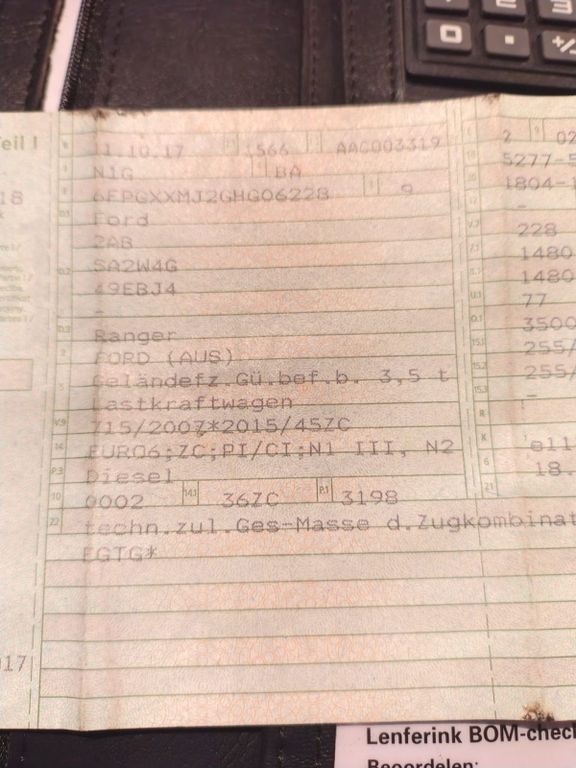 0 . +/-
Teil I
B 11.10.17 2.1 1566 2.2 AAC003319 L 2 9 02
J N1G 4 BA 5277-5
E 6FPGXXMJ2GHG06228 3 9 1804-1
18
D.1 Ford -
2AB 228
D.2 SA2W4G 1480
49EBJ4 1480
- 77
D.3 Ranger 3500
2 FORD (AUS) 255/
5 Geländefz.Gü.bef.b. 3,5 t 255/
Lastkraftwagen -
V.9 715/2007*2015/45ZC R
14 EURO6;ZC;PI/CI;N1 III, N2 K e11
P.3 Diesel 6 18.
10 0002 14.1 36ZC P.1 3198 21
22 techn.zul.Ges-Masse d.Zugkombinat
EGTG*
17
Lenferink BOM-check
Beoordelen: